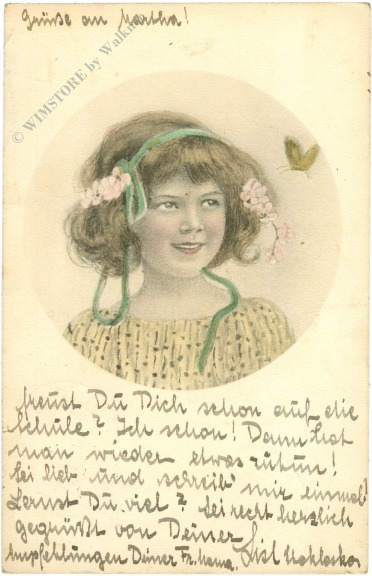 Grüße an Martha!
© WIMSTORE by Walkin
freust Du Dich schon auf die
Schule? Ich schon! Dann hat
man wieder etwas zutun!
Sei lieb und schreib' mir einmal!
Lernst Du viel? Sei recht herzlich
gegrüßt von Deiner
Empfehlungen Deiner Fr. Mama.